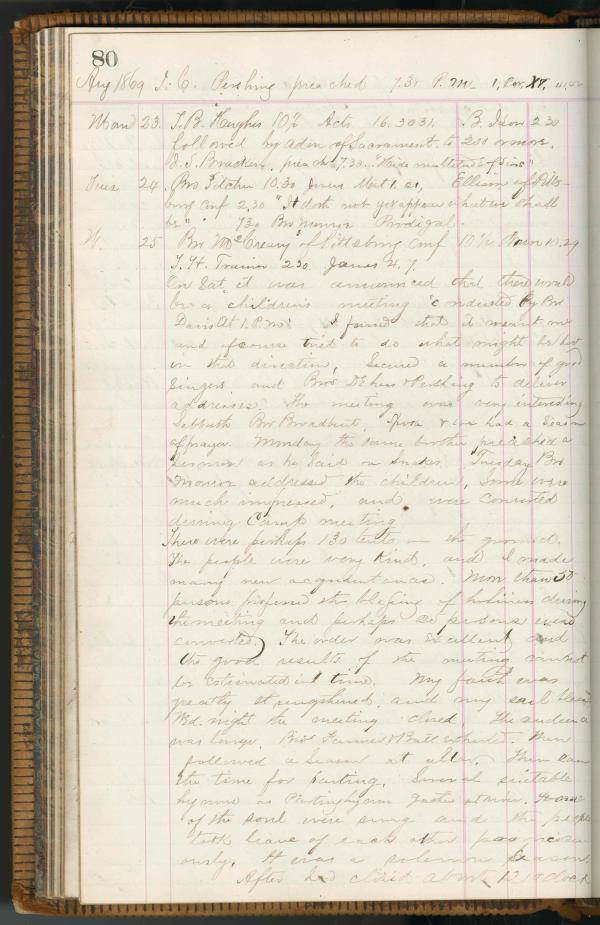 80
Aug 1869 I. C. Pershing preached 7.30 P.M. 1, Cor. XV,
Mond 23. T. B. Hughes 10½ Acts 16. 30 31. B. Ison 2 30
followed by adm of Sacrament to 200 or more.
J. S. Bracken, preach 7.30. "Hide multitude of sins"
Tues 24. Bro Fitcher 10.30 2,30 "It doth not yet appear what we shall
be" 730 Bro Monror Prodigal.
W. 25 Br McCreary of Pittsburg Conf 10½ 29
T. H. Trainor 2 30. James 4. 7.
On Sat, it was announced that there would
be a children's meeting conducted by Bro
Davis At 1. P.M. I found that it meant me
and of course tried to do what might be best
in that direction, Secured a number of good
Singers and Bros & Pershing to deliver
addresses. The meeting was very interesting
Sabbath Bro Broadbent, & we had a Season
of prayer. Monday the same brother preached a
sermon as he said on Snakes. Tuesday Bro
Monror addressed the children, Some were
much impressed, and were converted
during Camp meeting.
There were perhaps 130 tents on the ground.
The people were very Kind, and I made
many new acquaintances. More than 50
persons professed the blessing of holiness during
the meeting and perhaps 20 persons were
converted) The order was excellent and
the good results of the meeting cannot
be estimated in time. My faith was
greatly strengthened and my soul
Wed. night the meeting closed, The audience
was large. Bros Farmer & Ball exhorted. Then
followed a Season at altar. Then came
the time for parting. Several suitable
hymns as Parting hymn Gather at river. Home
of the soul were sung and the people
took leave of each other promiscu-
ously. It was a solemn season.
After had closed about 12 o clock